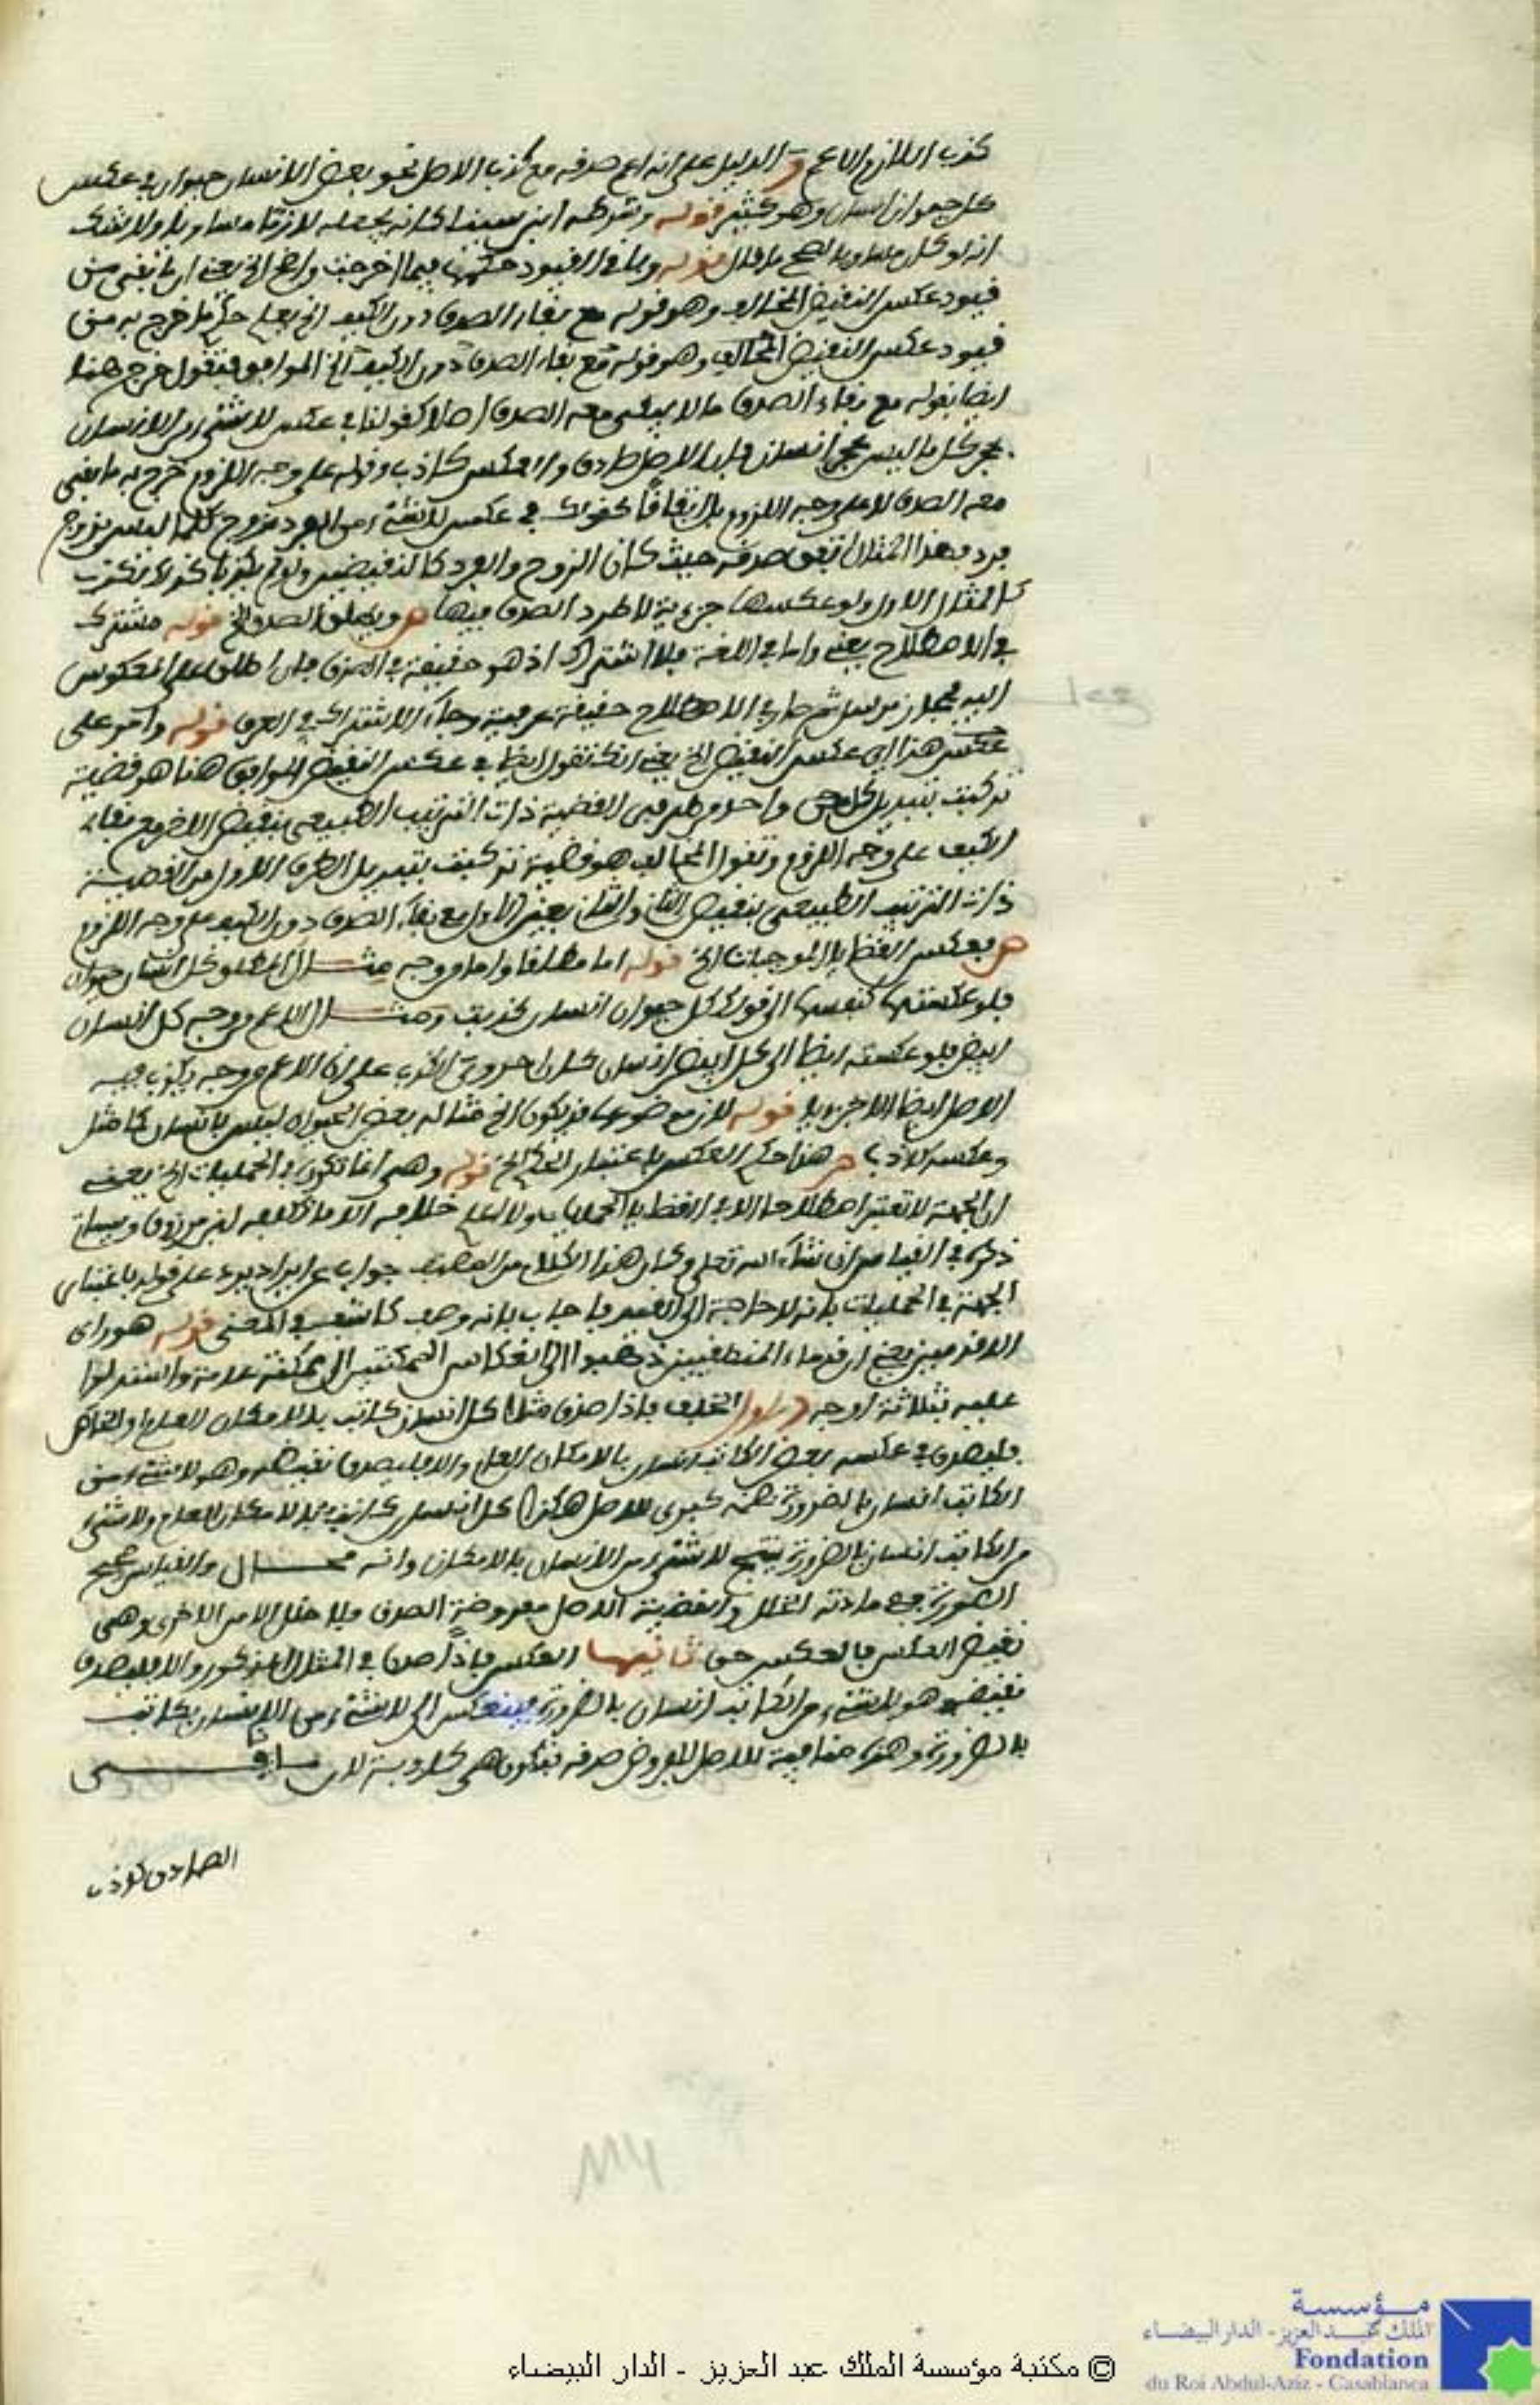 كذب اللازم الاعم و الدليل على انه اعم صدقه مع كذب الاصل نحو بعض الانسان حيوان في عكس
كل حيوان انسان وهو كثير قوله وشرطه ابن سينا كانه يجعله لازما مساويا ولا شك
انه لو كان مساويا لصح ما قال قوله وباقي القيود حكمها فيما اخرجت واضح الخ يعني ان ما بقي من
قيود عكس النقيض المخالف وهو قوله مع بقاء الصدق دون الكيف الخ يعلم حكم ما خرج به من
قيود عكس النقيض المخالف وهو قوله مع بقاء الصدق دون الكيف الخ الموافق فنقول خرج هنا
ايضا بقوله مع بقاء الصدق ما لا يبقى معه الصدق اصلا كقولنا في عكس لا شيء من الانسان
بحجر كل ما ليس بحجر انسان فان الاصل صادق والعكس كاذب وقوله على وجه اللزوم خرج به ما بقي
معه الصدق لا على وجه اللزوم بل اتفاقا كقولك في عكس لا شيء من الفرد بزوج كلما ليس بزوج
فرد فهذا المثال اتفق صدقه حيث كان الزوج والفرد كالنقيضين
كالمثال الاول ولو عكسها جزءية لاطرد الصدق فيها ص ويطلق الصدق الخ قوله مشترك
في الاصطلاح يعني واما في اللغة فلا اشتراك اذ هو حقيقة في المصدر فان اطلق على المعكوس
اليه فمجاز مرسل ثم صار في الاصطلاح حقيقة عرفية وجاء الاشتراك في العرف قوله وآخر على
عكس هذا اي عكس النقيض الخ يعني انك تقول ايضا في عكس النقيض الموافق هنا هو قضية
تركبت بتبديل كل من واحد من طرفي القضية ذات الترتيب الطبيعي بنقيض الاخر مع بقاء
الكيف على وجه اللزوم وتقول المخالف هو قضية تركبت بتبديل الطرف الاول من القضية
ذات الترتيب الطبيعي بنقيض الثاني والثاني بعين الاول مع بقاء الصدق دون الكيف على وجه اللزوم
ص فعكس القضايا الموجبات الخ قوله اما مطلقا واما من وجه مثال المطلق كل انسان حيوان
فلو عكستها كنفسها الى قولك كل حيوان انسان كذبت ومثال الاعم من وجه كل انسان
ابيض فلو عكسته ايضا الى كل ابيض انسان كان على ان الاعم من وجه يكذب فيه
الاصل ايضا الا جزءيا قوله لان موضوعها قد يكون الخ مثاله بعض الحيوان ليس بانسان كما مثل
وعكسه كاذب ص هذا حكم العكس باعتبار الكم الخ قوله وهي انما تكون في الحمليات الخ يعني
ان الجهة لا تعتبر اصطلاحا الا في القضايا الحمليات ولا نعلم خلافه الا ما لابن مرزوق وسياتي
ذكره في القياس ان شاء الله تعلى وكان هذا الكلام من المصنف جواب عن ايراد يرد على قوله باعتبار
الجهة في الحمليات بانه لا حاجة الى القيد فاجاب بانه وصف كاشف في المعنى قوله هو راي
الاقدمين يعني ان قدماء المنطقيين ذهبوا الى انعكاس الممكنتين الى ممكنة عامة واستدلوا
عليه بثلاثة اوجه الاول الخلف فاذا صدق مثلا كل انسان كاتب بالامكان العام والخاص
فليصدق في عكسه بعض الكاتب انسان بالامكان العام والا فليصدق نقيضه وهو لا شيء من
الكاتب انسان بالضرورة نضمه كبرى للاصل هكذا كل انسان كاتب بالامكان العام ولا شيء
من الكاتب انسان بالضرورة ينتج لا شيء من الانسان بالامكان وانه محال والقياس صحيح
الصورة ففي مادته الخلل وقضية الاصل مفروضة الصدق فلا خلل الا من الاخرى وهي
نقيض العكس فالعكس حق ثانيها العكس فاذا صدق في المثال المذكور والا فليصدق
نقيضه وهو لا شيء من الكاتب انسان بالضرورة فينعكس الى لا شيء من الانسان بكاتب
بالضرورة وهذه منافية للاصل المفروض صدقه فتكون هي كاذبة لان منافي
الصادق كاذب
© مكتبة مؤسسة الملك عبد العزيز - الدار البيضاء
مؤسسة
الملك عبد العزيز - الدار البيضاء
Fondation
du Roi Abdul-Aziz - Casablanca